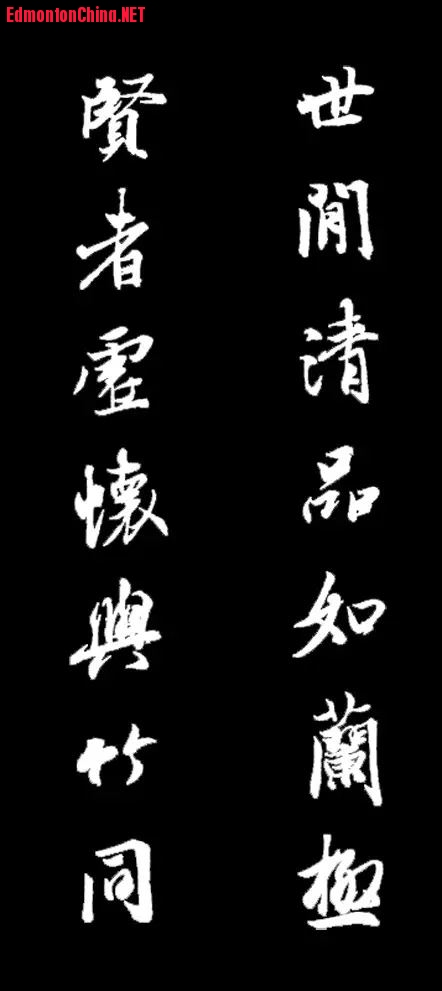 EdmontonChina.NET
世間清品如蘭極
賢者虛懷與竹同